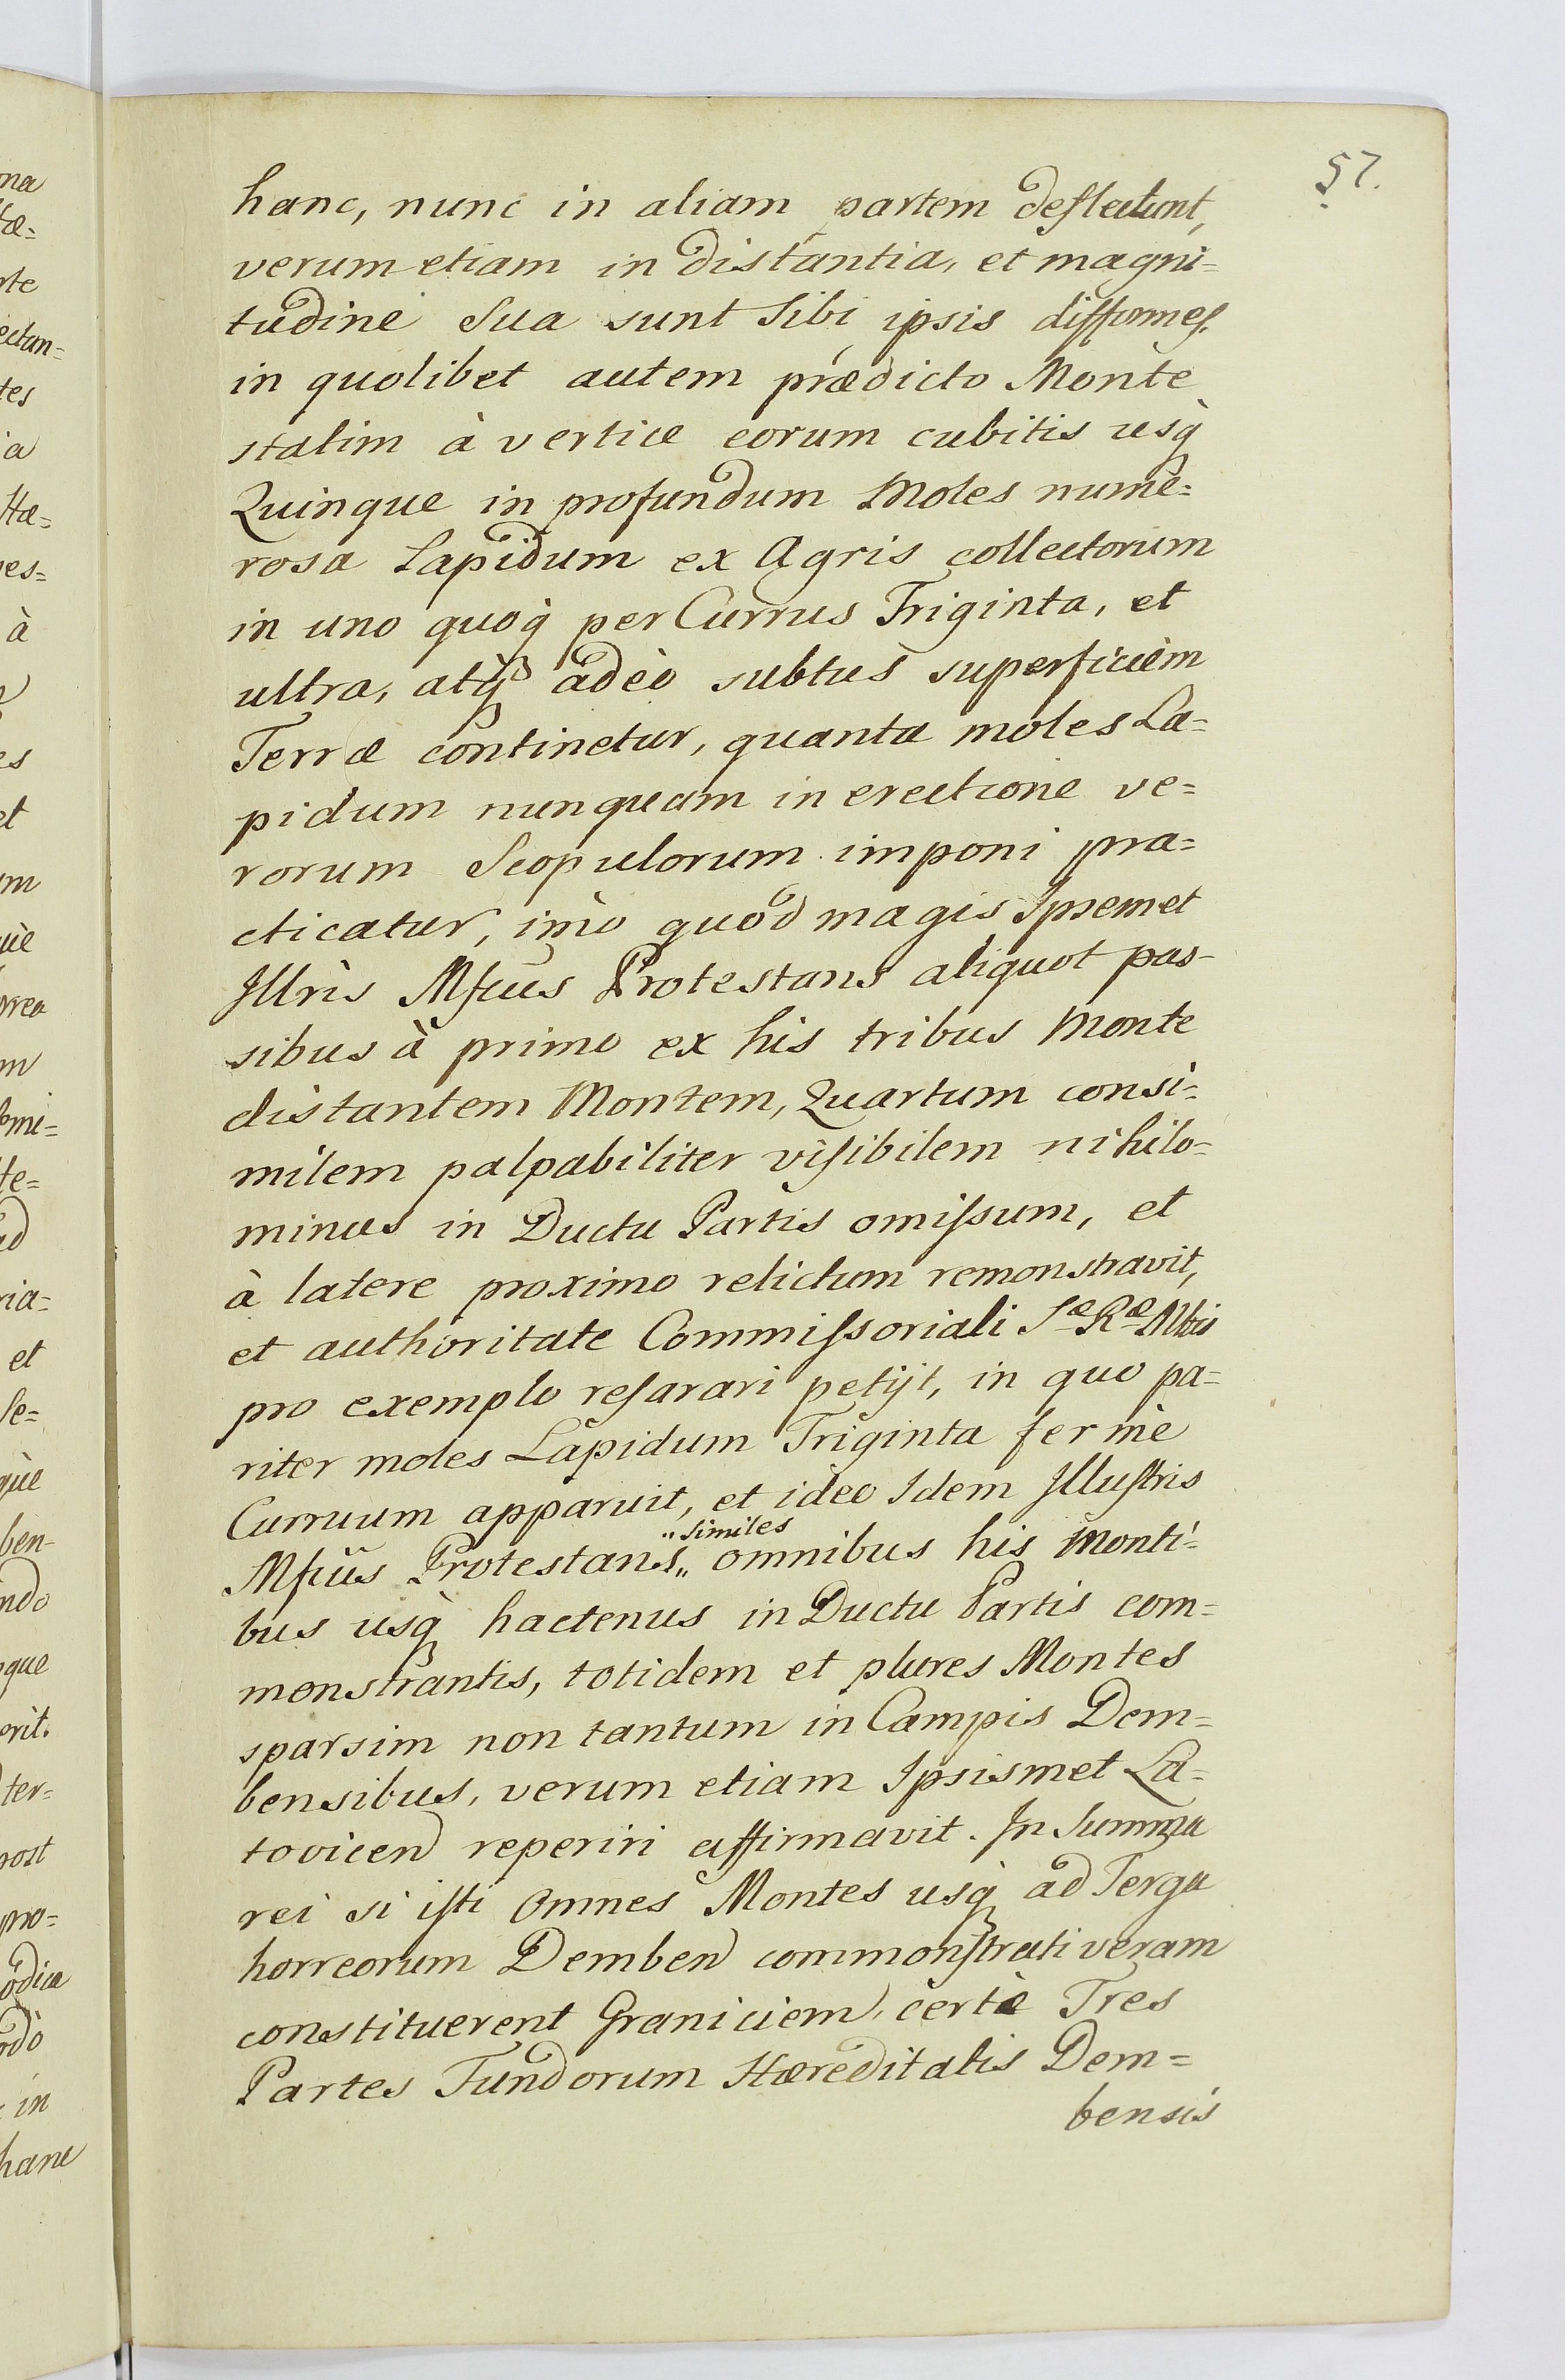 57.
hanc, nunc in aliam partem deflectunt,
verum etiam in distantia, et magni=
tudine sua sunt sibi ipsis difformes.
in quolibet autem prædicto Monte
statim à vertice eorum cubitis usq̀
Quinque in profundum Moles nume=
rosa Lapidum ex Agris collectorum
in uno quoq̀ per Currus Triginta, et
ultra, atq̀ adèo subtus superficiem
Terræ continetur, quanta moles La=
pidum nunquam in erectione ve=
rorum Scopulorum imponi pra=
cticatur, imò quod magis Ipsemet
Illris Mfcus Protestans aliquot pas-
sibus à primo ex his tribus Monte
distantem Montem, Quartum consi=
milem palpabiliter visibilem nihilo=
minus in Ductu Partis omissum, et
à latere proximo relictum remonstravit,
et authoritate Commissoriali Sæ Ræ Mtis
pro exemplo resarari petijt, in quo pa=
riter moles Lapidum Triginta fermè
Curruum apparuit, et ideo Idem Illustris
„similes
Mfcus Protestans„ omnibus his Monti=
bus usq̀ hactenus in Ductu Partis com=
monstrantis, totidem et plures Montes
sparsim non tantum in Campis Dem=
bensibus, verum etiam Ipsismet La=
tovicen reperiri affirmavit. In Summa
rei si isti Omnes Montes usq̀ ad Terga
horreorum Demben commonstrati veram
constituerent Graniciem, certè Tres
Partes Fundorum Hæreditatis Dem=
bensis
na
tæ=
rte
ectan=
tes
ia
Hæ=
es=
à
es
et
um
uè
rrea
m
omi=
te=
ad
ria=
et
se=
què
ben-
ndo
que
erit.
ter=
post
pro=
odica
odò
in
hanc